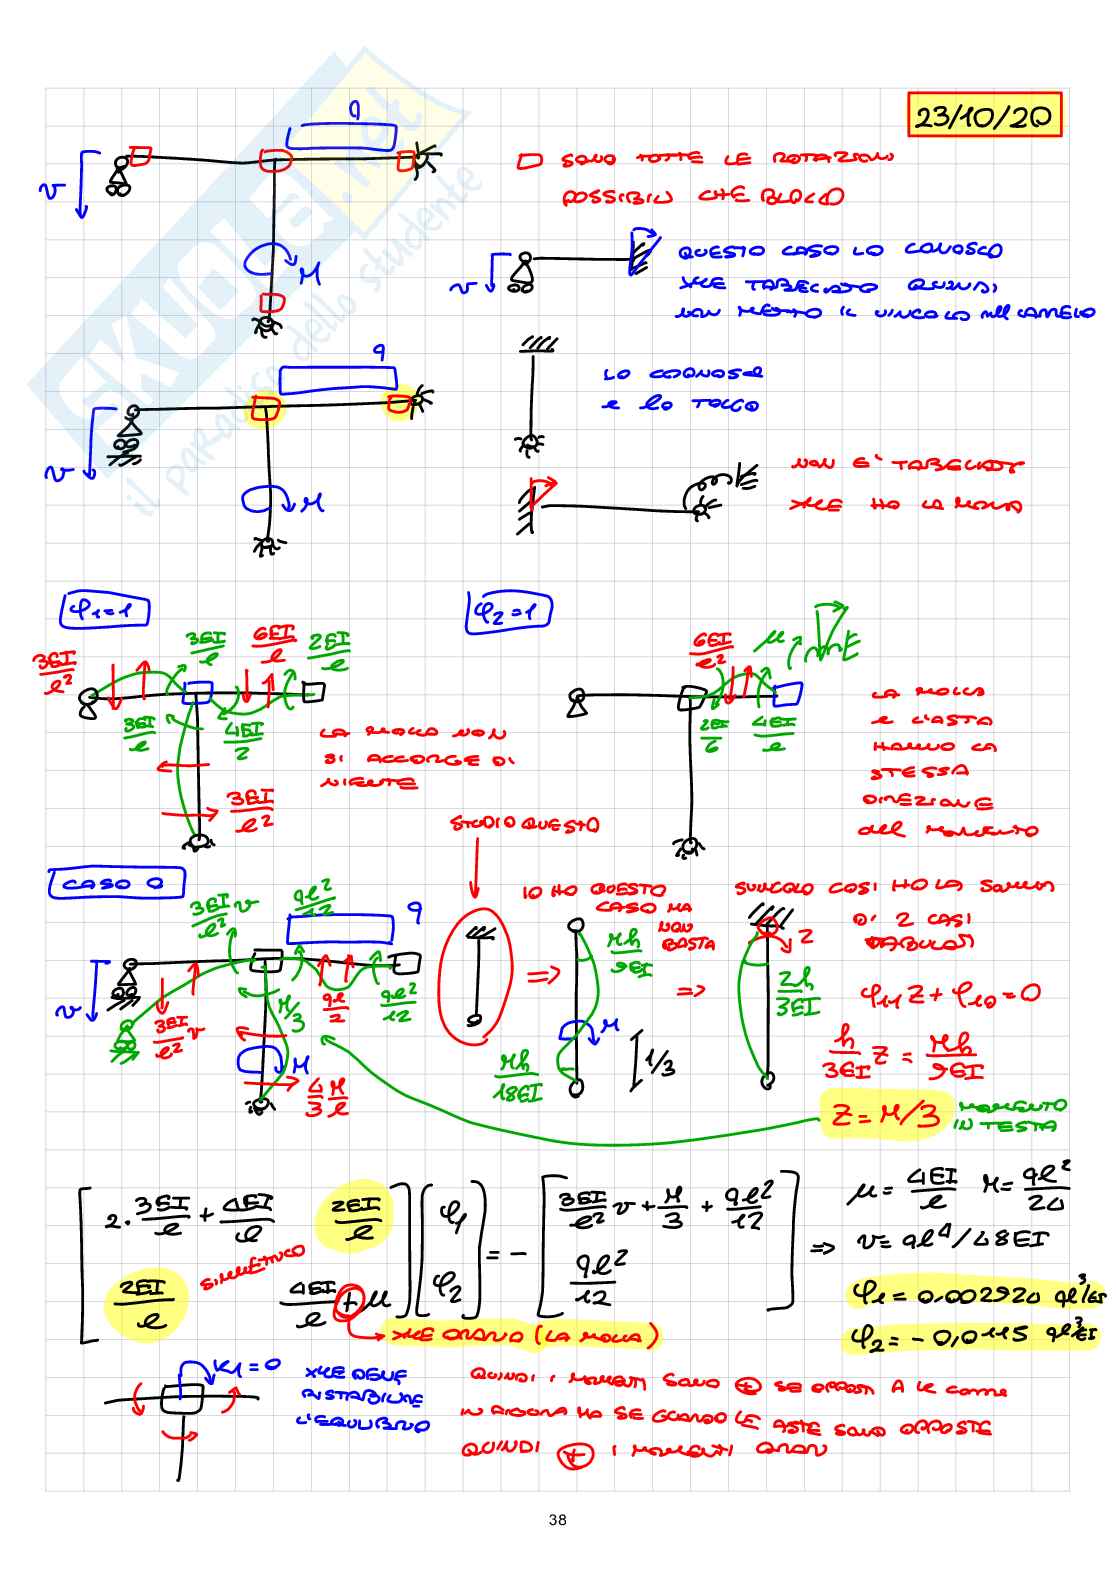 23/10/20
q
□ SONO TUTTE LE ROTAZIONI
POSSIBILI CHE BLOCCO
v
M
QUESTO CASO LO CONOSCO
XKE TABELLATO QUINDI
NON METTO IL VINCOLO NEL CARRELLO
v
q
LO CONOSCO
e lo TOLGO
v
M
NON E' TABELLATO
XKE HO LA MOLLA
φ1=1
φ2=1
3EI/l²
3EI/l
6EI/l
2EI/l
3EI/l
4EI/2
3EI/l²
LA MOLLA NON
SI ACCORGE DI
NIENTE
6EI/l²
μ
2EI/6
4EI/l
LA MOLLA
e L'ASTA
HANNO LA
STESSA
DIREZIONE
del MOMENTO
STUDIO QUESTO
CASO 0
3EI/l² v
ql²/12
q
v
3EI/l² v
M/3
ql/2
ql²/12
M
4/3 M/l
IO HO QUESTO
CASO MA
NON
BASTA
=>
Mh/9EI
M
Mh/18EI
1/3
=>
SVINCOLO COSÌ HO LA SOMMA
DI 2 CASI
TABULATI
Z
Zh/3EI
φ11 Z + φ10 = 0
h/3EI Z = Mh/9EI
Z = M/3
MOMENTO
IN TESTA
[2·3EI/l + 4EI/l   2EI/l] [φ1] = - [3EI/l² v + M/3 + ql²/12]
SIMMETRICO
[2EI/l   4EI/l + μ] [φ2] [ql²/12]
μ = 4EI/l   M = ql²/24
=> v = ql⁴/48EI
φ1 = 0.002920 ql³/EI
φ2 = -0,0115 ql³/EI
XKE ORARIO (LA MOLLA)
K1=0
XKE DEVE
RISTABILIRE
L'EQUILIBRIO
QUINDI I MOMENTI SONO ⊕ SE OPPOSTI A LE COME
IN ANCORA MA SE GUARDO LE ASTE SONO OPPOSTE
QUINDI ⊕ I MOMENTI ORARI
38
SKUOLA.net
il paradiso dello studente